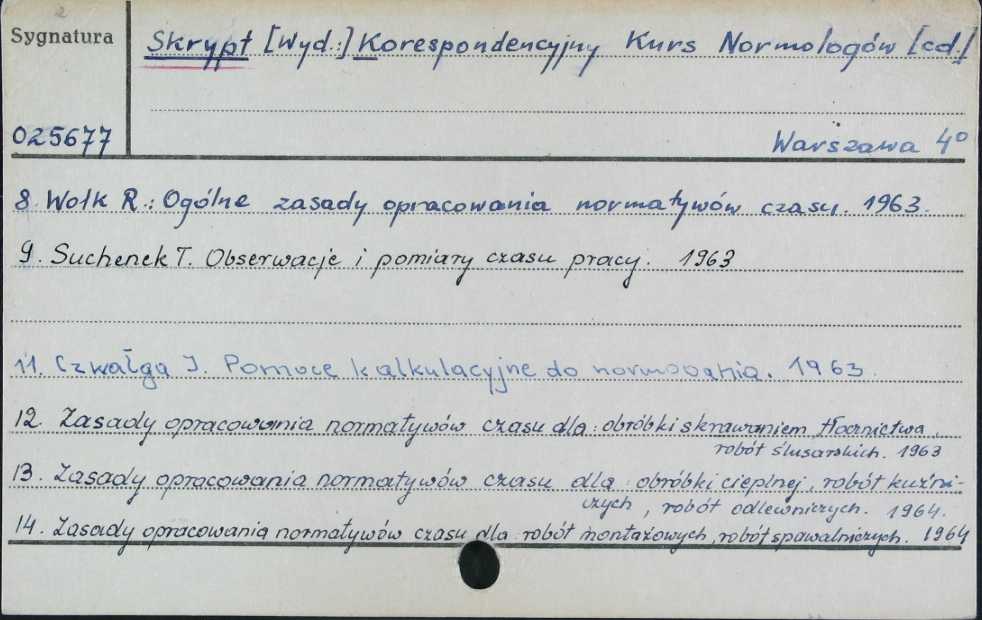 2
Sygnatura
Skrypt [Wyd.:] Korespondencyjny Kurs Normologów [cd.]
025677
Warszawa 4º
8. Wołk R.: Ogólne zasady opracowania normatywów czasu. 1963.
9. Suchenek T. Obserwacje i pomiary czasu pracy. 1963
11. Czwałga J. Pomoce kalkulacyjne do normowania. 1963.
12. Zasady opracowania normatywów czasu dla: obróbki skrawaniem, tłocznictwa,
robót ślusarskich. 1963
13. Zasady opracowania normatywów czasu dla: obróbki cieplnej, robót kuźni-
czych, robót odlewniczych. 1964.
14. Zasady opracowania normatywów czasu dla robót montażowych, robót spawalniczych. 1964